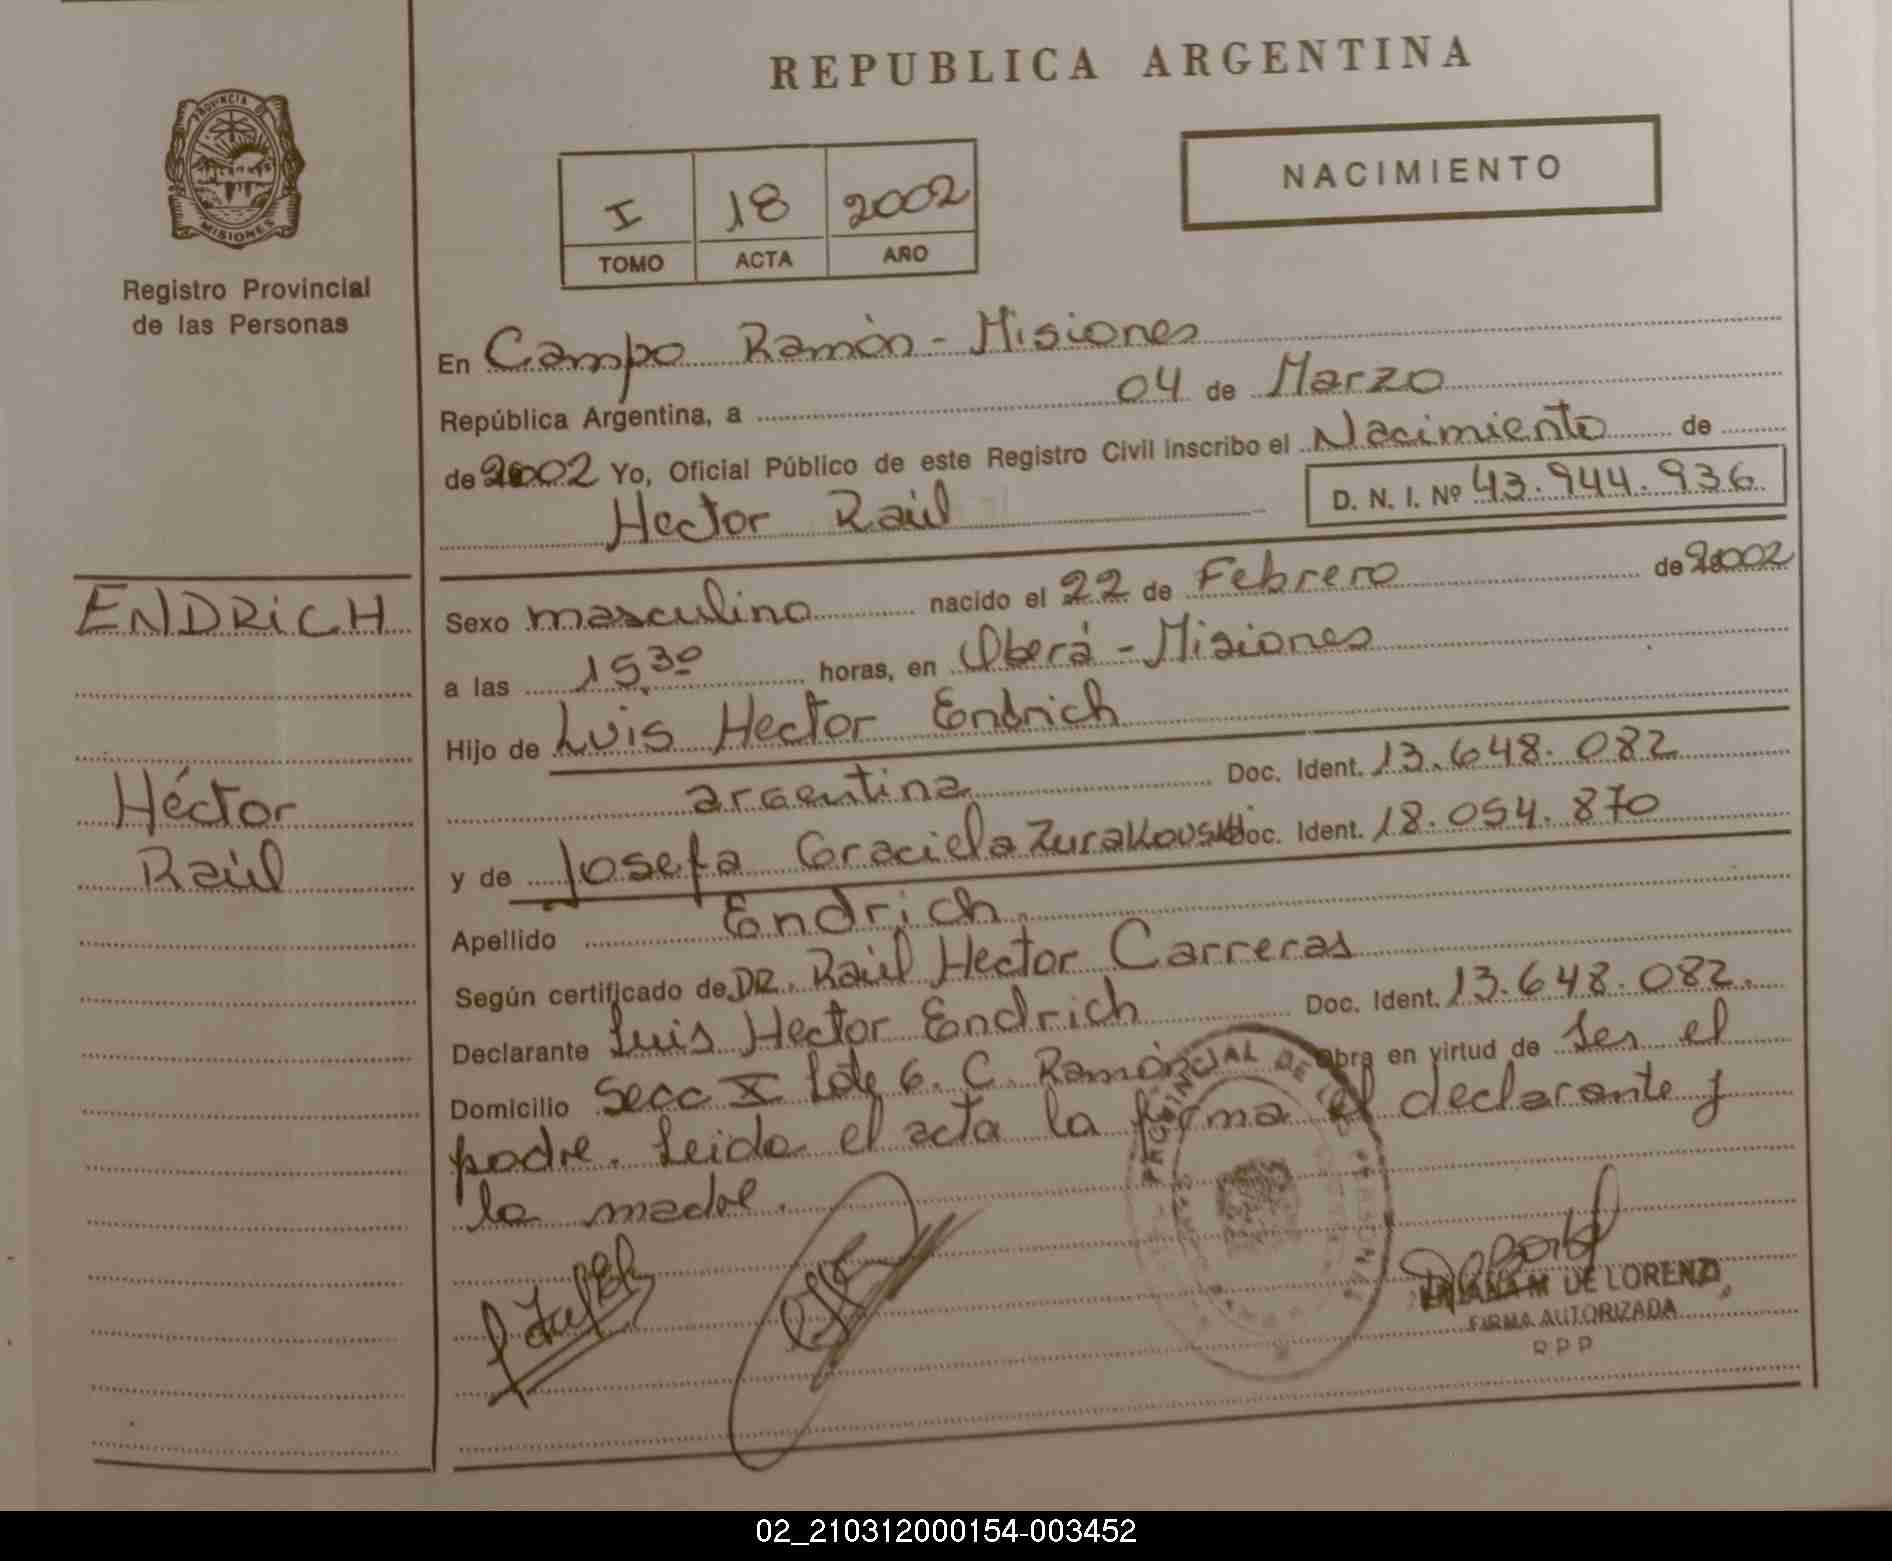 REPUBLICA ARGENTINA
PROVINCIA DE
MISIONES
Registro Provincial
de las Personas
I 18 2002
TOMO ACTA AÑO
NACIMIENTO
En Campo Ramón - Misiones
República Argentina, a 04 de Marzo
de 2002 Yo, Oficial Público de este Registro Civil inscribo el Nacimiento de
Hector Raúl D. N. I. Nº 43.944.936
ENDRICH
Héctor
Raúl
Sexo masculino nacido el 22 de Febrero de 2002
a las 15,30 horas, en Oberá - Misiones
Hijo de Luis Hector Endrich
argentina Doc. Ident. 13.648.082
y de Josefa Graciela Zurakouski Doc. Ident. 18.054.870
Apellido Endrich
Según certificado de DR. Raúl Hector Carreras
Declarante Luis Hector Endrich Doc. Ident. 13.648.082.
Domicilio Secc X Lote 6. C. Ramón Obra en virtud de ser el
padre. Leida el acta la firma el declarante y
la madre.
PROVINCIAL DE
DE LORENZO
FIRMA AUTORIZADA
R P P
02_210312000154-003452